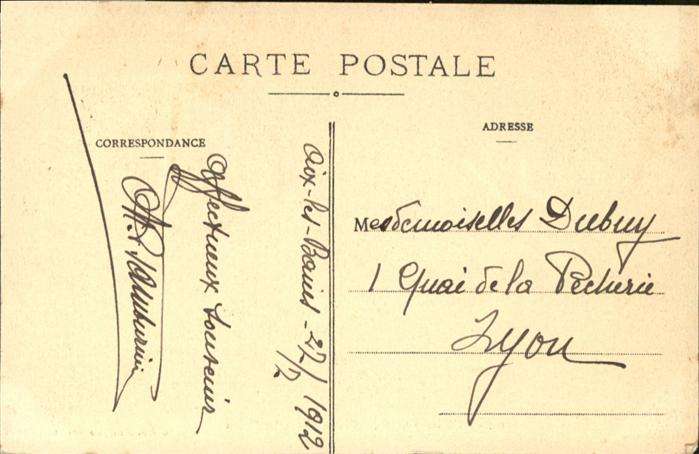 CARTE POSTALE
CORRESPONDANCE
ADRESSE
Aix-les-Bains - 27/7/1912
Affectueux souvenir
Mesdemoiselles Dubuy
1 Quai de la Pêcherie
Lyon